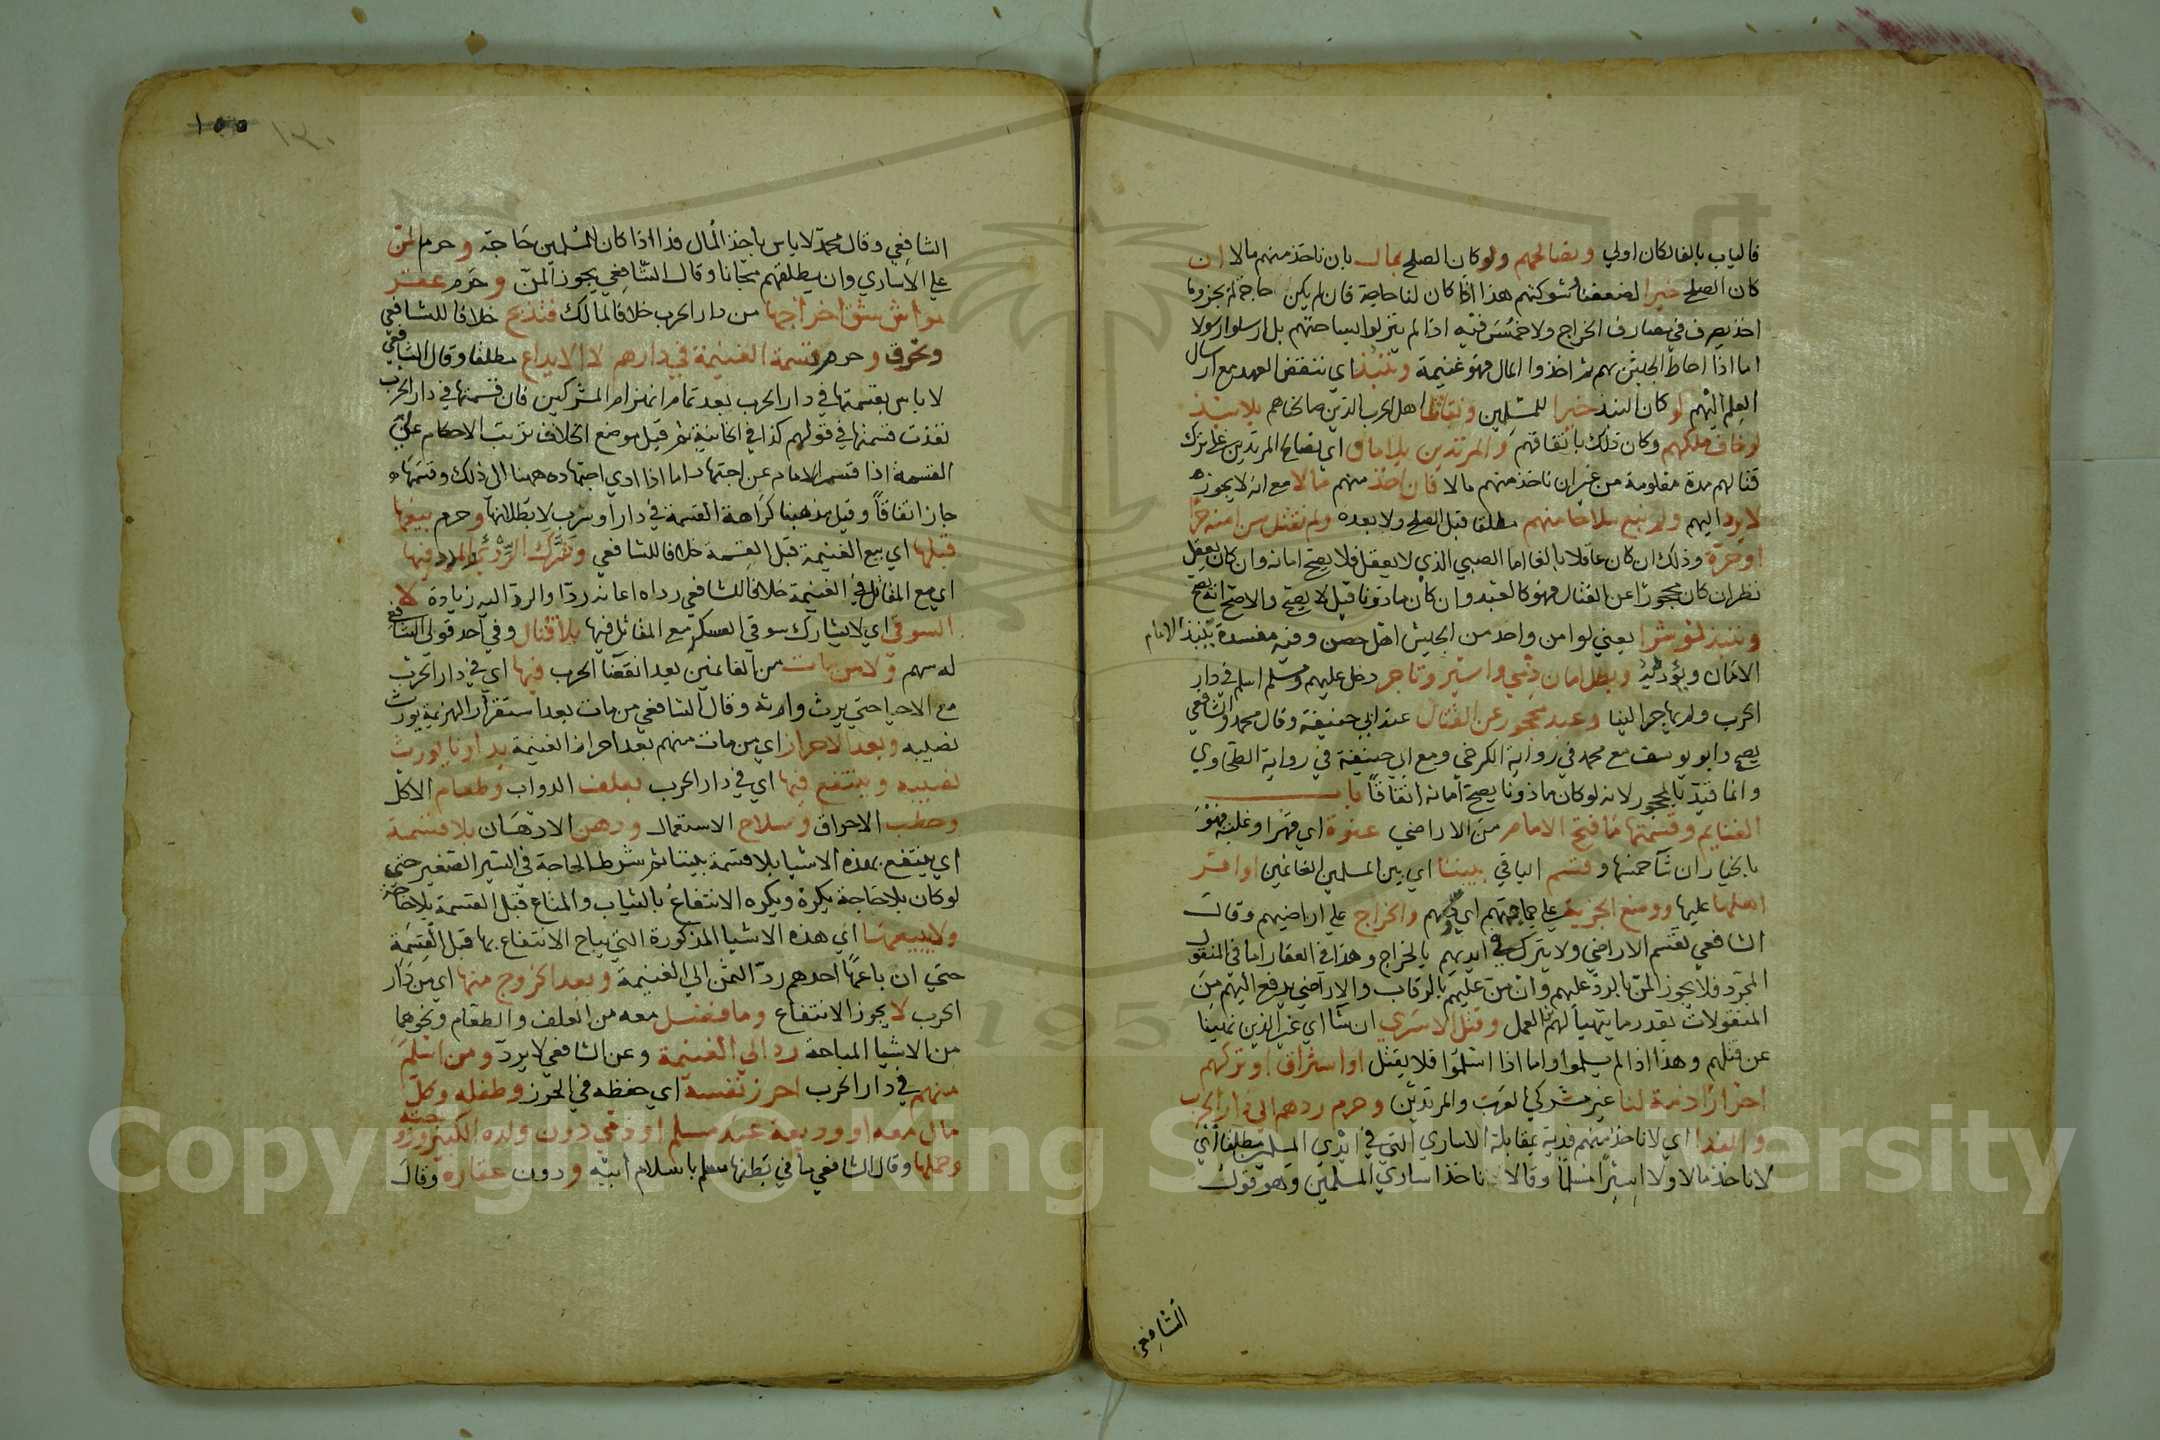 فالباب بالغا لكان اولي ونصالحهم ولو كان الصلح بمال بان ناخذ منهم مالا ان
كان الصلح خيرا لضعفنا لشوكتهم هذا اذا كان لنا حاجة فان لم يكن حاجة لم يجز وما
اخذ يصرف في مصارف الخراج ولا خمس فيه اذا لم ينزلوا بساحتهم بل ارسلوا رسولا
اما اذا احاط الجيش بهم ثم اخذوا المال فهو غنيمة وننبذ اي ننقض العهد مع ارسال
العلم اليهم لو كان النبذ خيرا للمسلمين ونقاتل اهل الحرب الذين صالحناهم بلا نبذ
لو خان ملكهم وكان ذلك باتفاقهم والمرتدين بلا مال اي نصالح المرتدين علي ترك
قتالهم مدة معلومة من غير ان ناخذ منهم مالا فان اخذ منهم مالا مع انه لا يجوز
لا يرد اليهم ولم نبع سلاحا منهم مطلقا قبل الصلح ولا بعده ولم نقتل من امنه حر
او حرة وذلك ان كان عاقلا بالغا اما الصبي الذي لا يعقل فلا يصح امانه وان كان يعقل
نظر ان كان محجورا عن القتال فهو كالعبد وان كان ماذونا قيل لا يصح والاصح انه يصح
وننبذ لو شرا يعني لو امن واحد من الجيش اهل حصن وفيه مفسدة ينبذ الامام
الامان ويؤدبه وبطل امان ذمي واسير وتاجر دخل عليهم ومسلم اسلم في دار
الحرب ولم يهاجر الينا وعبد محجور عن القتال عند ابي حنيفة وقال محمد والشافعي
يصح وابو يوسف مع محمد في رواية الكرخي ومع ابي حنيفة في رواية الطحاوي
وانما قيد بالمحجور لانه لو كان ماذونا يصح امانه اتفاقا باب
الغنايم وقسمتها ما فتح الامام من الاراضي عنوة اي قهرا وغلبة فهو
بالخيار ان شا خمسها وقسم الباقي بيننا اي بين المسلمين الغانمين او اقر
اهلها عليها ووضع الجزية علي جماجمهم والخراج علي اراضيهم وقال
الشافعي تقسم الاراضي ولا يترك في ايديهم بالخراج وهذا في العقار اما في المنقول
المجرد فلا يجوز المن بالرد عليهم وان من عليهم بالرقاب والاراضي يدفع اليهم من
المنقولات بقدر ما يتهيأ لهم العمل وقتل الاسري ان شا اي غير الذين نهينا
عن قتلهم وهذا اذا لم يسلموا واما اذا اسلموا فلا يقتل او استراق او تركهم
احرارا ذمة لنا غير مشركي العرب والمرتدين وحرم ردهم الي دار الحرب
والفدا اي لا ناخذ منهم فدية بمقابلة الاساري التي في ايدي المسلمين مطلقا اي
لا ناخذ مالا ولا اسيرا مسلما وقالا ناخذ اساري المسلمين وهو قول
الشافعي
١٥٥
الشافعي وقال محمد لا باس باخذ المال فدا اذا كان للمسلمين حاجة وحرم المن
علي الاساري وان يطلقهم مجانا وقال الشافعي يجوز المن وحرم عقر
مواش شق اخراجها من دار الحرب خلافا لمالك فتذبح خلافا للشافعي
وتحرق وحرم قسمة الغنيمة في دارهم لا الايداع مطلقا وقال الشافعي
لا باس بقسمتها في دار الحرب بعد تمام انهزام المشركين فان قسمتها في دار الحرب
نفذت قسمتها في قولهم كذا في الخانية ثم قيل موضع الخلاف ترتب الاحكام علي
القسمة اذا قسم الامام عن اجتهاد اما اذا ادي اجتهاده ههنا الي ذلك وقسمها
جاز اتفاقا وقيل مذهبنا كراهة القسمة في دار الحرب لا بطلانها وحرم بيعها
قبلها اي بيع الغنيمة قبل القسمة خلافا للشافعي وشرك الردء والمدد فيها
اي مع المقاتل في الغنيمة خلافا للشافعي رداه اعانه ردا والرد اليه زيادة لا
السوقي اي لا يشارك سوقي العسكر مع المقاتل فيها بلا قتال وفي احد قولي الشافعي
له سهم ولا من مات من الغانمين بعد انقضا الحرب فيها اي في دار الحرب
مع الاحيا حتي يرث وارثه وقال الشافعي من مات بعد استقرار الهزيمة يورث
نصيبه وبعد الاحراز اي من مات منهم بعد احراز الغنيمة بدارنا يورث
نصيبه وينتفع فيها اي في دار الحرب بعلف الدواب وطعام الاكل
وحطب الاحراق وسلاح الاستعمال ودهن الادهان بلا قسمة
اي ينتفع بهذه الاشيا بلا قسمة بيننا ثم شرط الحاجة في السير الصغير حتي
لو كان بلا حاجة يكره ويكره الانتفاع بالثياب والمتاع قبل القسمة بلا حاجة
ولا يبيعها اي هذه الاشيا المذكورة التي يباح الانتفاع بها قبل القسمة
حتي ان باعها احدهم رد الثمن الي الغنيمة وبعد الخروج منها اي من دار
الحرب لا يجوز الانتفاع وما فضل معه من العلف والطعام ونحوهما
من الاشيا المباحة رد الي الغنيمة وعن الشافعي لا يرد ومن اسلم
منهم في دار الحرب احرز نفسه اي حفظه في الحرز وطفله وكل
مال معه او وديعة عند مسلم او ذمي دون ولده الكبير وزوجته
وحملها وقال الشافعي ما في بطنها مسلم باسلام ابيه ودون عقاره وقال
Copyright © King Saud University